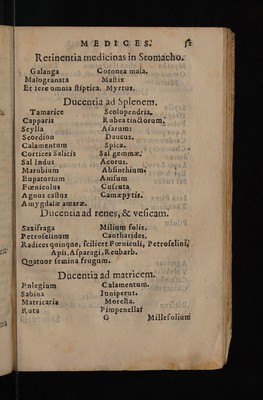 MEDICES. 51
Retinentia medicinas in Stomacho.
Galanga Cotonea mala.
Malogranata Mastix
Et fere omnia stiptica. Myrtus.
Ducentia ad Splenem.
Tamarice Scolopendria.
Capparis Rubea tinctorum.
Scylla Asarum:
Scordion Daucus.
Calamentum Spica.
Cortices Salicis Sal gemmæ.
Sal Indus Acorus.
Marobium Absinthium.
Eupatorium Anisum
Fœniculus Cuscuta
Agnus castus Camæpytis.
Amygdalæ amaræ.
Ducentia ad renes, & vesicam.
Saxifraga Milium solis.
Petroselinum Cantharides.
Radices quinque, scilicet Fœniculi, Petroselini,
Apii. Asparagi, Reubarb.
Quatuor semina frugum.
Ducentia ad matricem.
Pulegium Calamentum.
Sabina Iuniperus.
Matricaria Morella.
Ruta Pimpenella:
G Millefolium